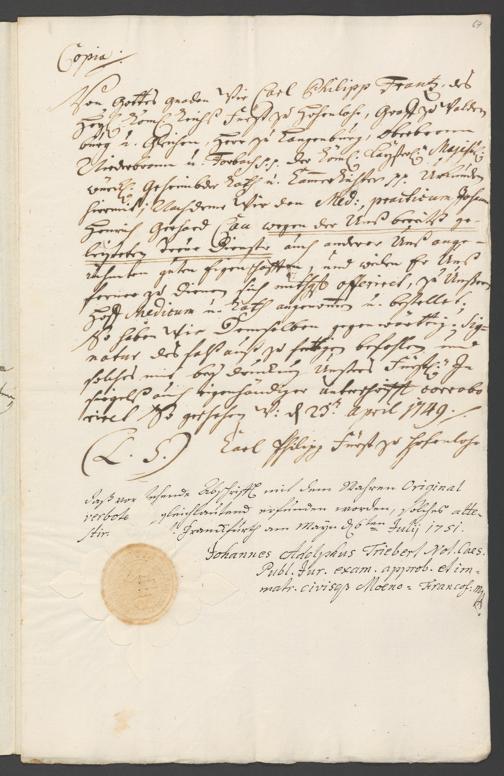 69
Copia.
Von Gottes gnaden Wir Carl Philipp Frantz, des
Heyl: Röm: Reichs Fürst zu Hohenlohe, Graff zu Walden
burg u. Gleichen, Herr zu Langenburg, Oberbronn
Niederbronn u. Forbach p.p. der Röm: Kayserl: Majestät
würckl: Geheimbder Rath u. Cammerrichter p.p. Uhrkunden
hiermit; Nachdeme Wir den Med: practicum Johann
Henrich Gerhard Cau wegen der Uns bereits ge-
leysteten treue Dienste auch anderer Uns ange-
rühmten guten Eigenschafften, und indem Er Uns
ferner zu dienen sich offerirt, zu Unserem
Hoff Medicum u. Rath angenommen u. bestellet,
So haben Wir Demselben gegenwärtig Sig-
natur des falls zu fertigen befohlen und
solches mit bey Unseres Fürstl: In
siegels auch eigenhändiger unterschrifft corrobo
riret So geschehen d 23t April 1749.
(L. S.) Carl Philipp Fürst zu Hohenlohe
Daß vor stehende Abschrifft mit dem Wahren Original
verbote gleichlautend erfunden worden, solches atte-
stir. Franckfurth am Mayn d 6ten July 1751.
Johannes Adolphus Triebert Not. Caes.
Publ. Jur. exam. approb. et im-
matr. civisq Moeno-Francof.